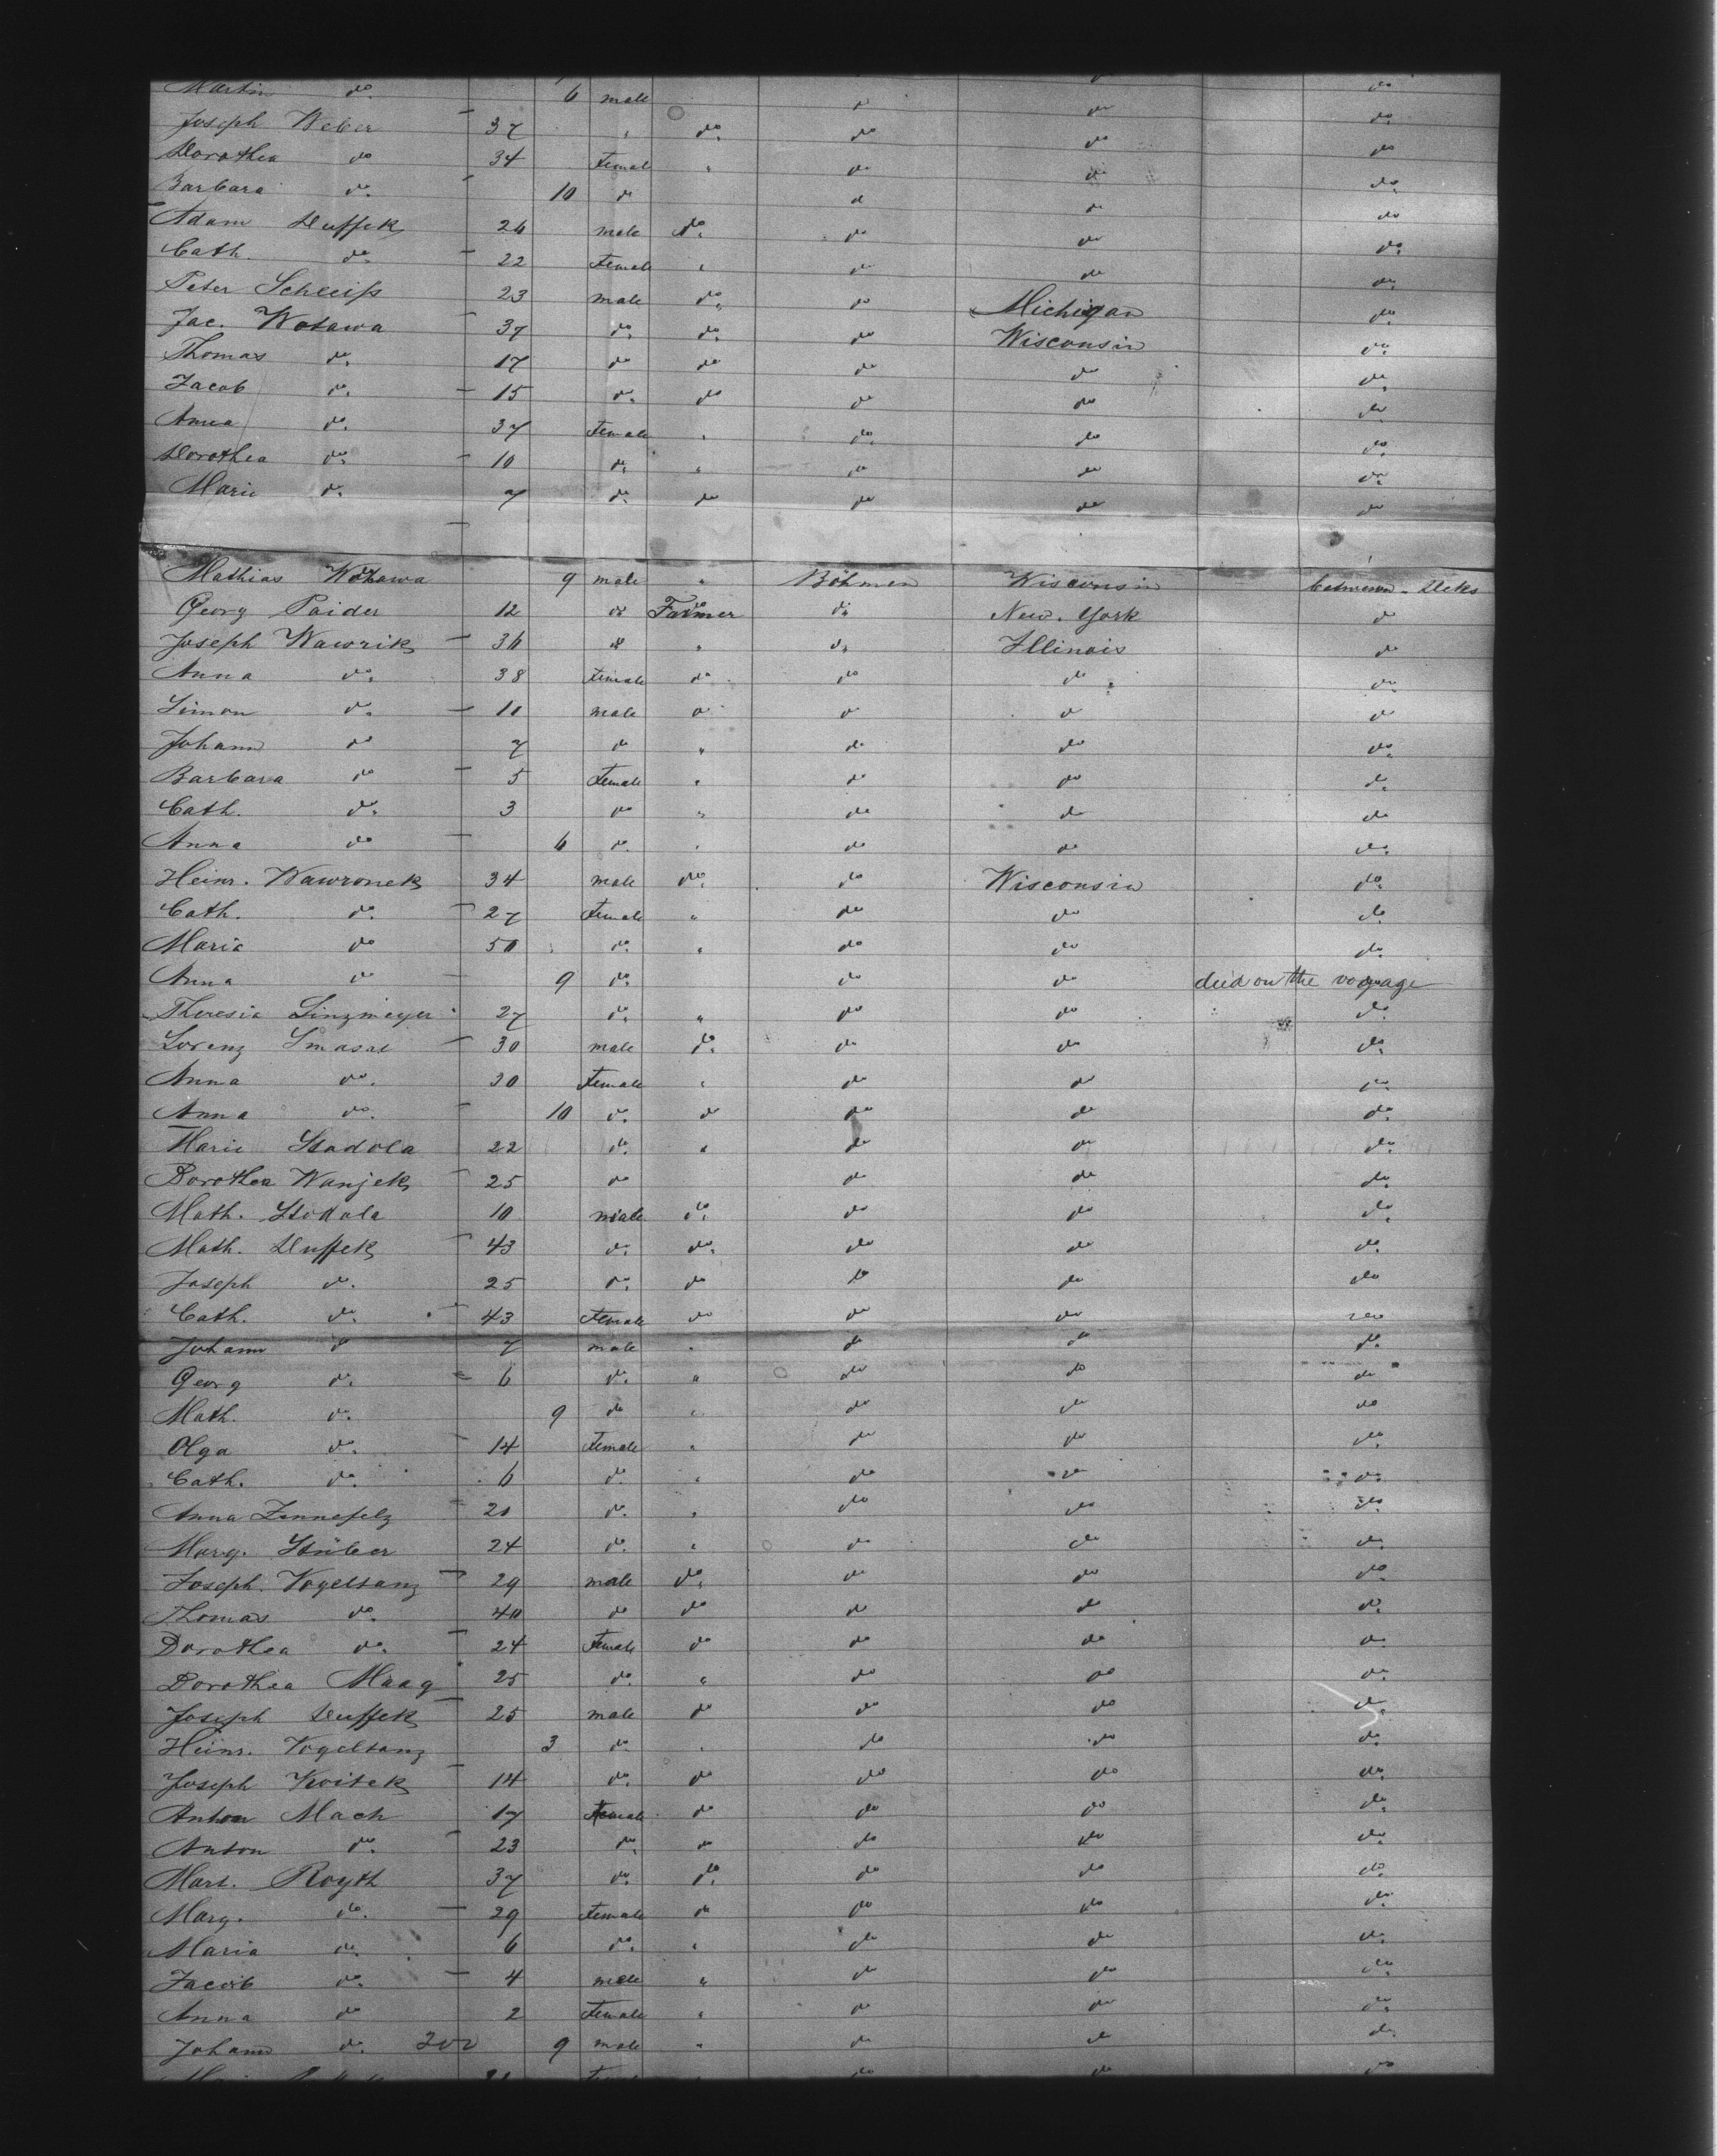 Martin do. 6 male do do do.
Joseph Weber 37 " do. do do do
Dorothea do 34 Female " do do do
Barbara do. 10 do do do do.
Adam Duffek 26 male do. do do do.
Cath. do. 22 Female " do do do.
Peter Schleiß 23 male do. do Michigan do.
Jac. Wotawa 37 do. do. do Wisconsin do.
Thomas do. 17 do do do do do.
Jacob do. 15 do. do do do do.
Anna do. 37 Female " do. do do.
Dorothea do. 10 do. " do do do.
Marie do. 7 do. do do do do
Mathias Wotawa 9 male " Böhmen Wisconsin between Deks
Georg Paider 12 do Farmer do New-York do
Joseph Wawrik 36 do " do Illinois do
Anna do. 38 Female do do do do.
Simon do. 11 male do do do do
Johann do 7 do " do do do.
Barbara do 5 Female " do do do.
Cath. do. 3 do " do do do
Anna do 6 do. " do do do.
Heinr. Wawronek 34 male do. do Wisconsin do.
Cath. do. 27 Female " do do do.
Maria do 50 do. " do do do.
Anna do 9 do. do do died on the voyage
Theresia Linzmeyer 27 do. " do do do.
Lorenz Smasal 30 male do. do do do.
Anna do. 30 Female " do do do.
Anna do. 10 do. do do do do.
Marie Stodola 22 do. " do do do.
Dorothea Wanjek 25 do do do do.
Math. Stodola 10 male do. do do do.
Math. Duffek 43 do. do. do do do.
Joseph do. 25 do. do do do do
Cath. do. 43 Female do do do do
Johann do 7 male " do do do.
Georg do. 6 do. " do do do
Math. do. 9 do " do do do
Olga do. 14 Female " do do do.
Cath. do. 6 do. " do do do.
Anna 20 do. " do do do.
Marg. Stüber 24 do. " do do do.
Joseph Vogeltanz 29 male do. do do do
Thomas do. 40 do do do do do.
Dorothea do. 24 Female do do do do.
Dorothea Maag 25 do. " do do do.
Joseph Duffek 25 male do do do do.
Heinr. Vogeltanz 3 do. " do do do.
Joseph Kwitek 14 do. do do do do.
Anton Mach 17 Female do do do do.
Anton do. 23 do. do do do do.
Mart. Royth 37 do. do. do do do.
Marg. do. 29 Female do do do do.
Maria do. 6 do. " do do do.
Jacob do. 4 male " do do do.
Anna do 2 Female " do do do.
Johann do. 200 9 male " do do do.